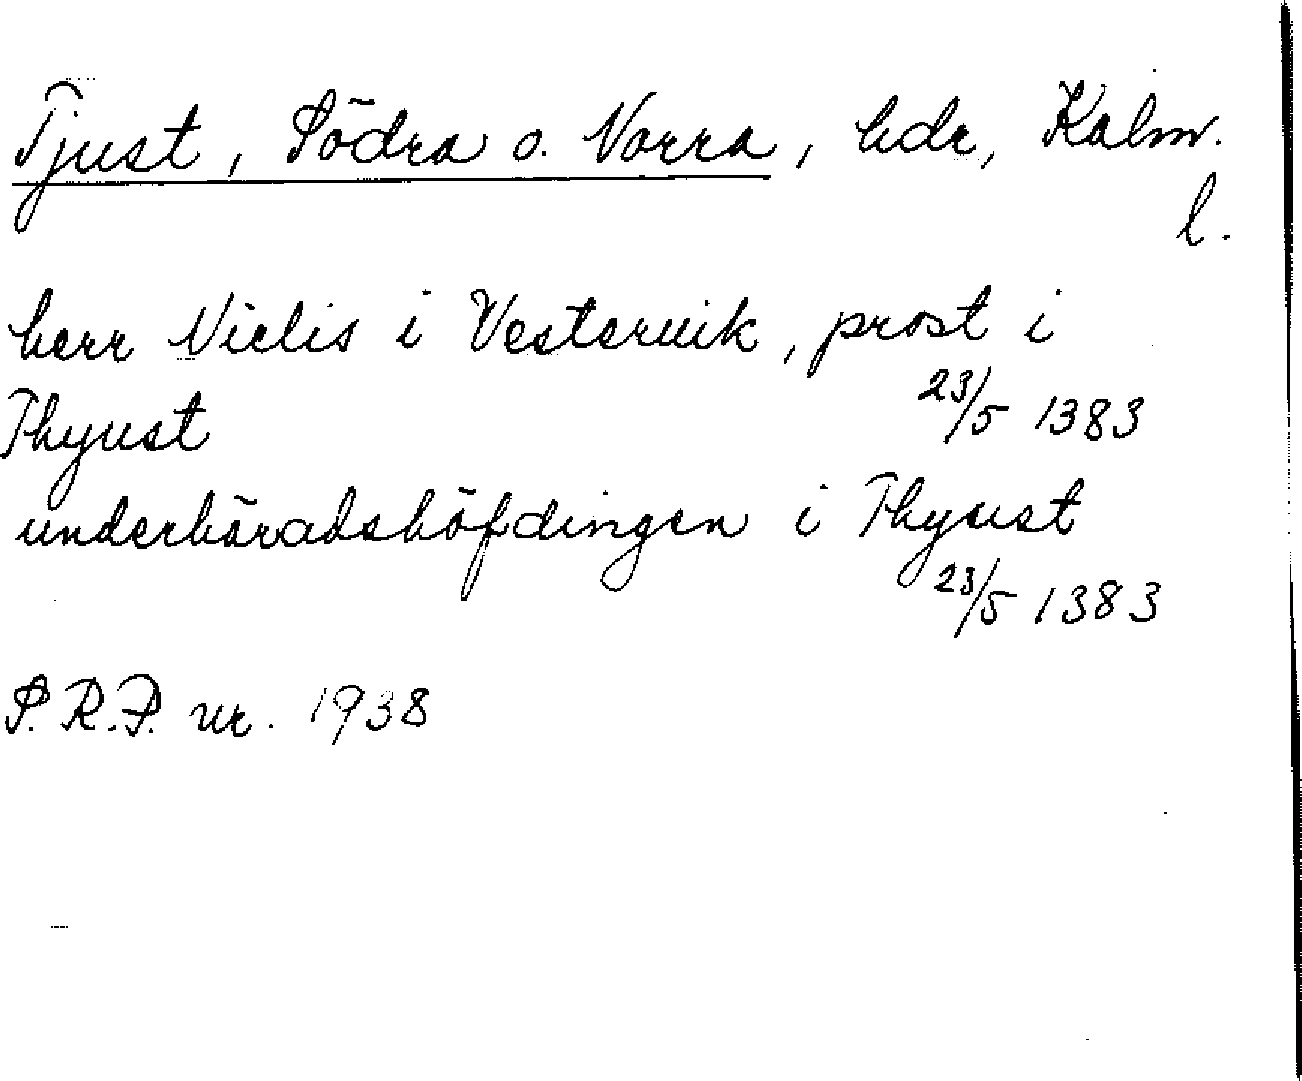 Tjust, Södra o. Norra, hdr, Kalm.
l.
herr Nielis i Vesteruik, prost i
Thyust 23/5 1383
underhäradshöfdingen i Thyust
23/5 1383
S.R.P. nr. 1938